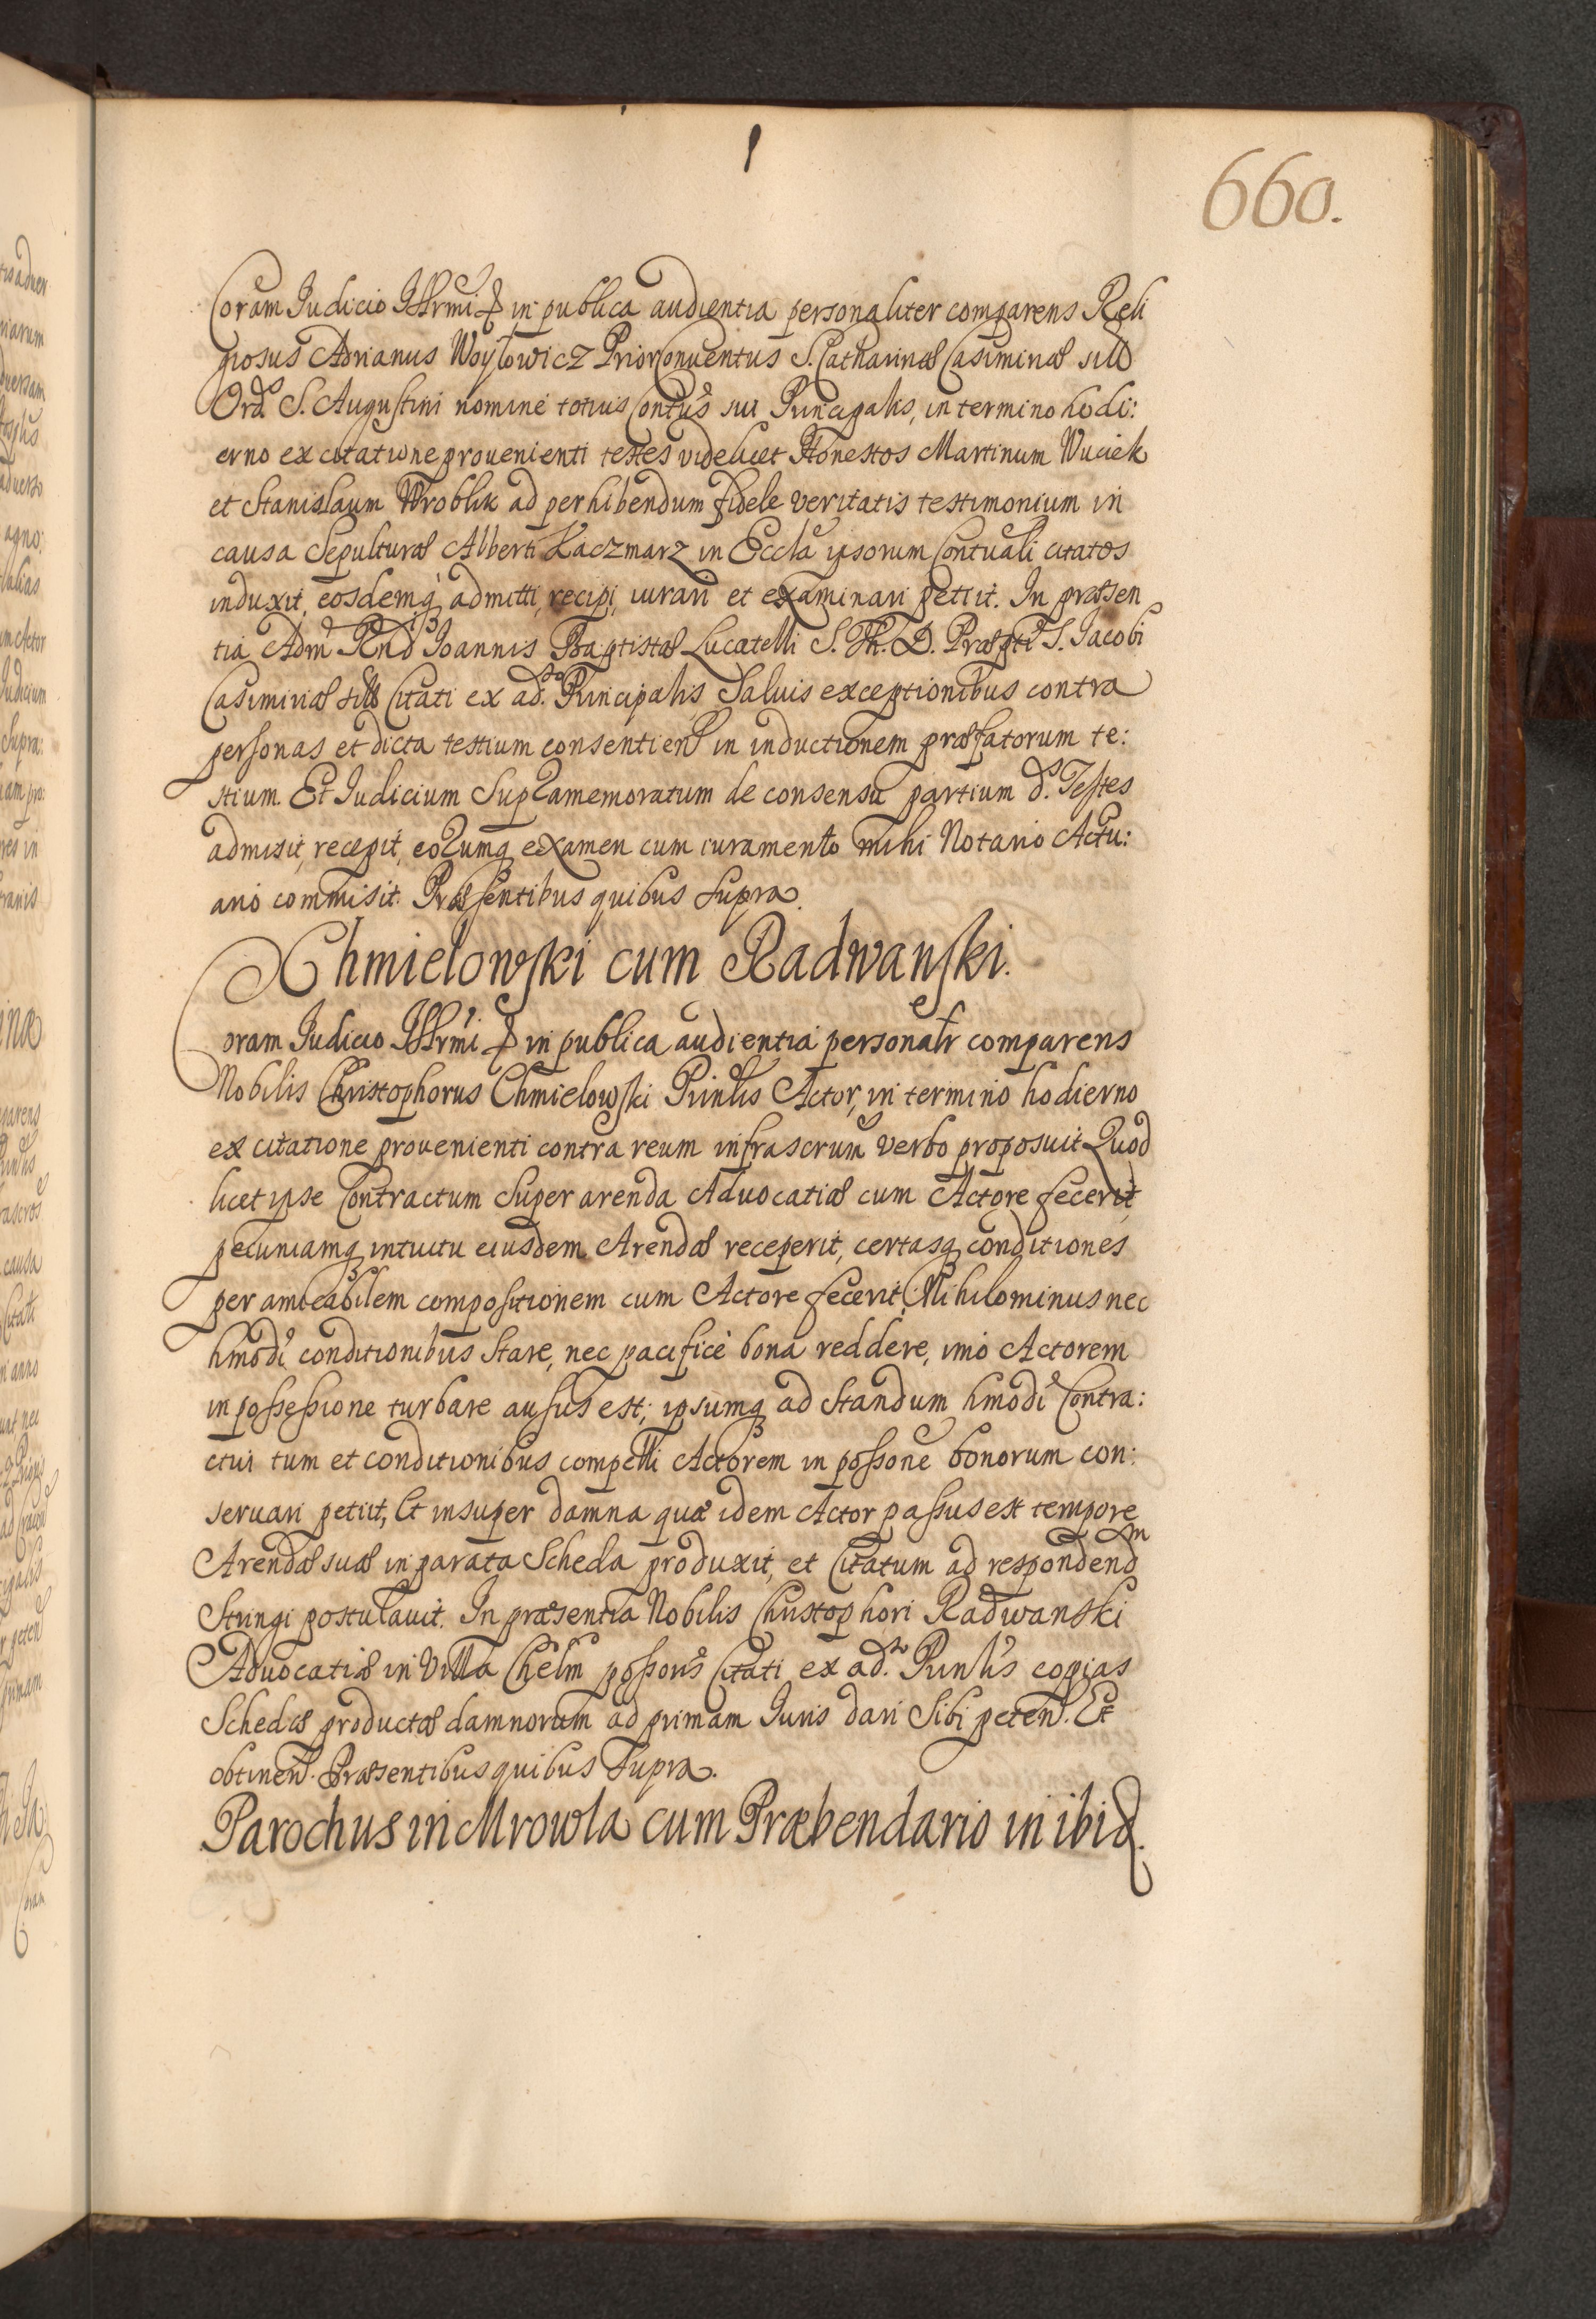 660.
Coram Judicio Illrmi in publica audientia personaliter comparens Reli
giosus Adrianus Woytowicz Prior Conuentus S. Catharinæ Casimiriæ
Ord S. Augustini nomine totius Contus sui Principalis, in termino hodi:
erno ex citatione prouenienti testes videlicet Honestos Martinum Wuciek
et Stanislaum Wroblik ad perhibendum fidele veritatis testimonium in
causa Sepulturæ Alberti Kaczmarz in Eccla ipsorum Contuali citatos
induxit, eosdemq admitti, recipi, iurari et examinari petiit. In præsen
tia Adm Rnd Joannis Baptistæ Lucatelli S. Th. D. Præpti S. Jacobi
Casimiriæ Citati ex ad. Principalis Saluis exceptionibus contra
personas et dicta testium consentien in inductionem præfatorum te:
stium Et Judicium Supramemoratum de consensu partium d. Testes
admisit, recepit, eorumq examen cum iuramento mihi Notario Actu:
ario commisit. Præsentibus quibus supra.
Chmielowski cum Radwanski.
Coram Judicio Illrmi in publica audientia personalr comparens
Nobilis Christophorus Chmielowski Prinlis Actor, in termino hodierno
ex citatione prouenienti contra reum infrascrum verbo proposuit Quod
licet ipse Contractum Super arenda Aduocatiæ cum Actore fecerit,
pecuniamq intuitu eiusdem Arendæ receperit, certasq conditiones
per amicabilem compositionem cum Actore fecerit, Nihilominus nec
hmodi conditionibus Stare, nec pacificè bona reddere, imò Actorem
in possessione turbare ausus est; ipsumq ad Standum hmodi Contra:
ctui tum et conditionibus compelli Actorem in possone bonorum con:
seruari petiit, Et insuper damna quæ idem Actor passus est tempore
Arendæ suæ in parata Scheda produxit, et Citatum ad respondendm
Stringi postulauit. In præsentia Nobilis Christophori Radwanski
Aduocatiæ in Villa Chełm possoris Citati ex ad. Prinlis copias
Schedæ productæ damnorum ad primam Juris dari Sibi peten. Et
obtinen. Præsentibus quibus Supra.
Parochus in Mrowla cum Præbendario in ibid.